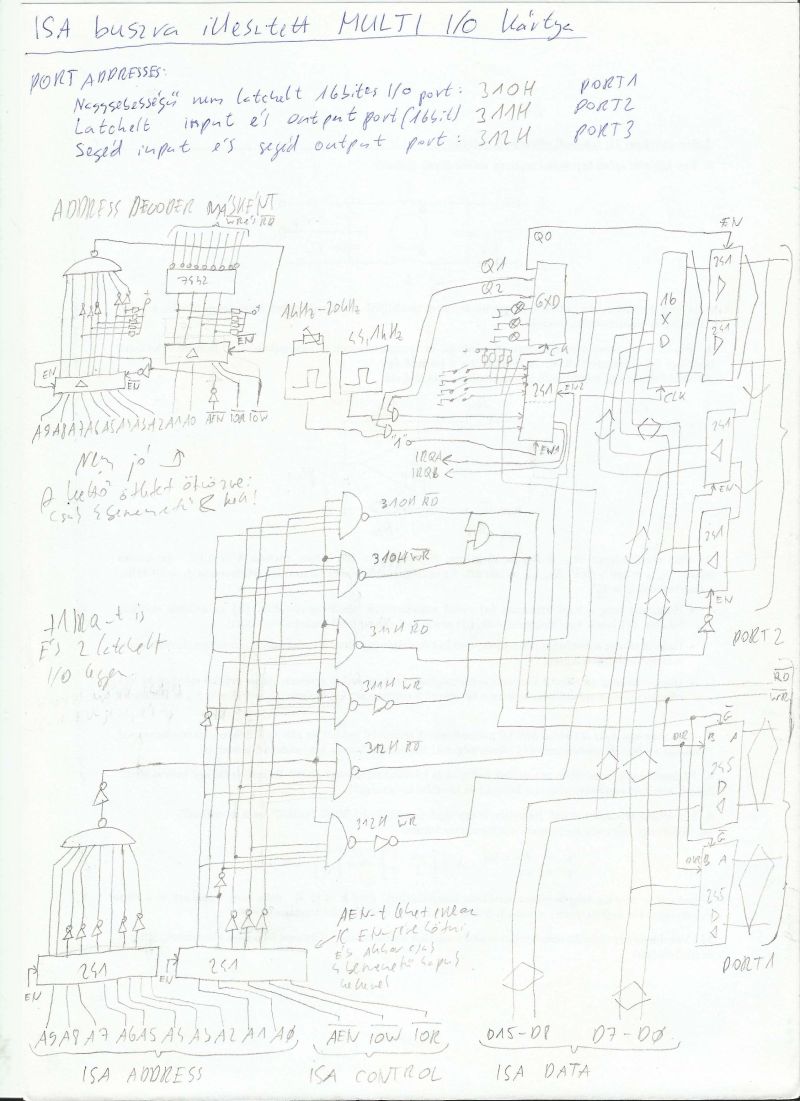 ISA buszra illesztett MULTI I/O kártya
PORT ADDRESSES:
Nagysebességű nem latchelt 16bites I/O port: 310H PORT1
Latchelt input és output port (16bit) 311H PORT2
Segéd input és segéd output port: 312H PORT3
ADDRESS DECODER MÁSKÉNT
WR és RD
7442
EN
EN
EN
A9 A8 A7 A6 A5 A4 A3 A2 A1 A0 AEN IOR IOW
Nem jó
1kHz-20kHz
44,1kHz
"1"
Q0
Q1
Q2
6XD
CLK
241
EN2
EN1
IRQA
IRQB
16
X
D
CLK
EN
241
241
241
EN
241
EN
PORT2
+1 IRQ-t is
És 2 latchelt
I/O legyen
310H RD
310H WR
311H RD
311H WR
312H RD
312H WR
RD
WR
G
DIR B A
245
G
DIR B A
245
PORT1
AEN-t lehet
EN
241
EN
241
A9 A8 A7 A6 A5 A4 A3 A2 A1 A0
AEN IOW IOR
D15-D8 D7-D0
ISA ADDRESS
ISA CONTROL
ISA DATA